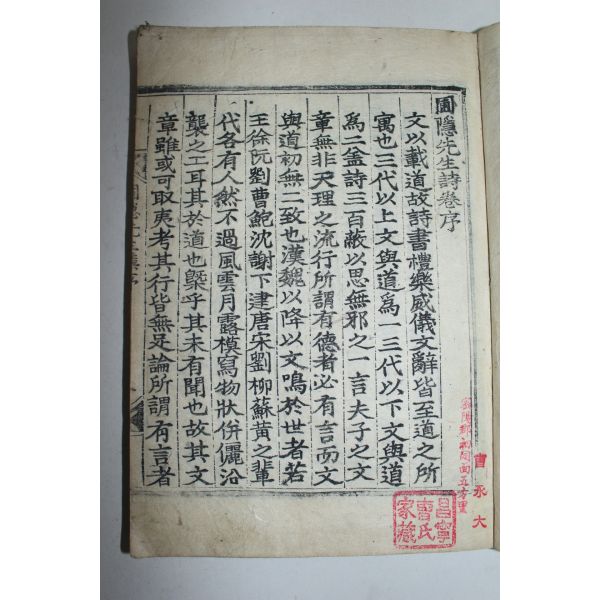 圃隱先生詩卷序
文以載道故詩書禮樂威儀文辭皆至道之所
寓也三代以上文與道爲一三代以下文與道
爲二盖詩三百蔽以思無邪之一言夫子之文
章無非天理之流行所謂有德者必有言而文
與道初無二致也漢魏以降以文鳴於世者若
王徐阮劉曹鮑沈謝下逮唐宋劉柳蘇黃之輩
代各有人然不過風雲月露模寫物狀倂儷沿
襲之工耳其於道也槩乎其未有聞也故其文
章雖或可取夷考其行皆無足論所謂有言者
曺承大
昌寧
曺氏
家藏